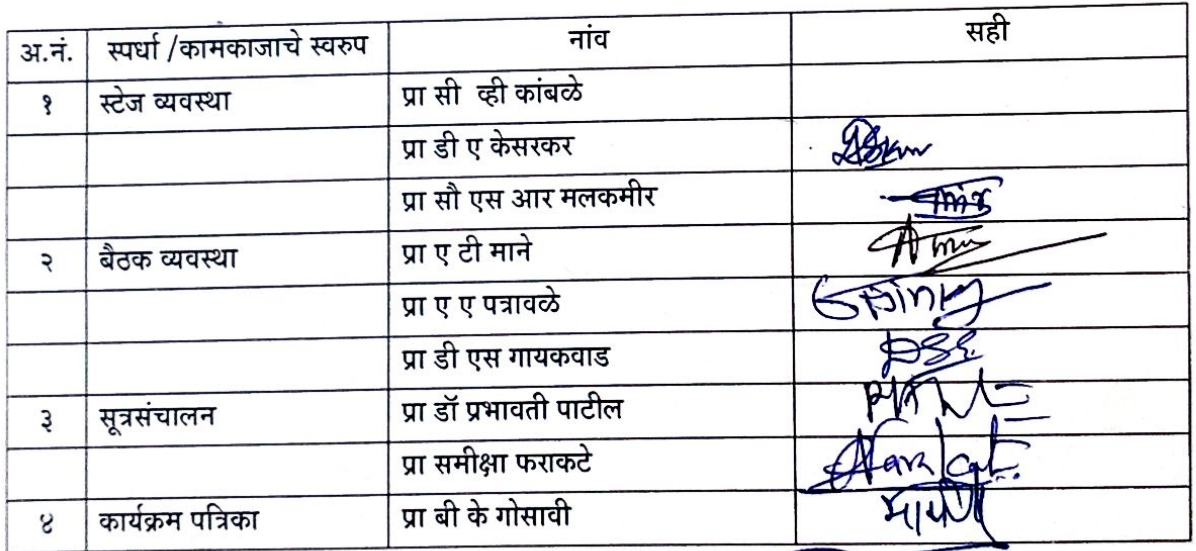 अ.नं. स्पर्धा /कामकाजाचे स्वरुप नांव सही
१ स्टेज व्यवस्था प्रा सी व्ही कांबळे
प्रा डी ए केसरकर
प्रा सौ एस आर मलकमीर
२ बैठक व्यवस्था प्रा ए टी माने
प्रा ए ए पत्रावळे
प्रा डी एस गायकवाड
३ सूत्रसंचालन प्रा डॉ प्रभावती पाटील
प्रा समीक्षा फराकटे
४ कार्यक्रम पत्रिका प्रा बी के गोसावी